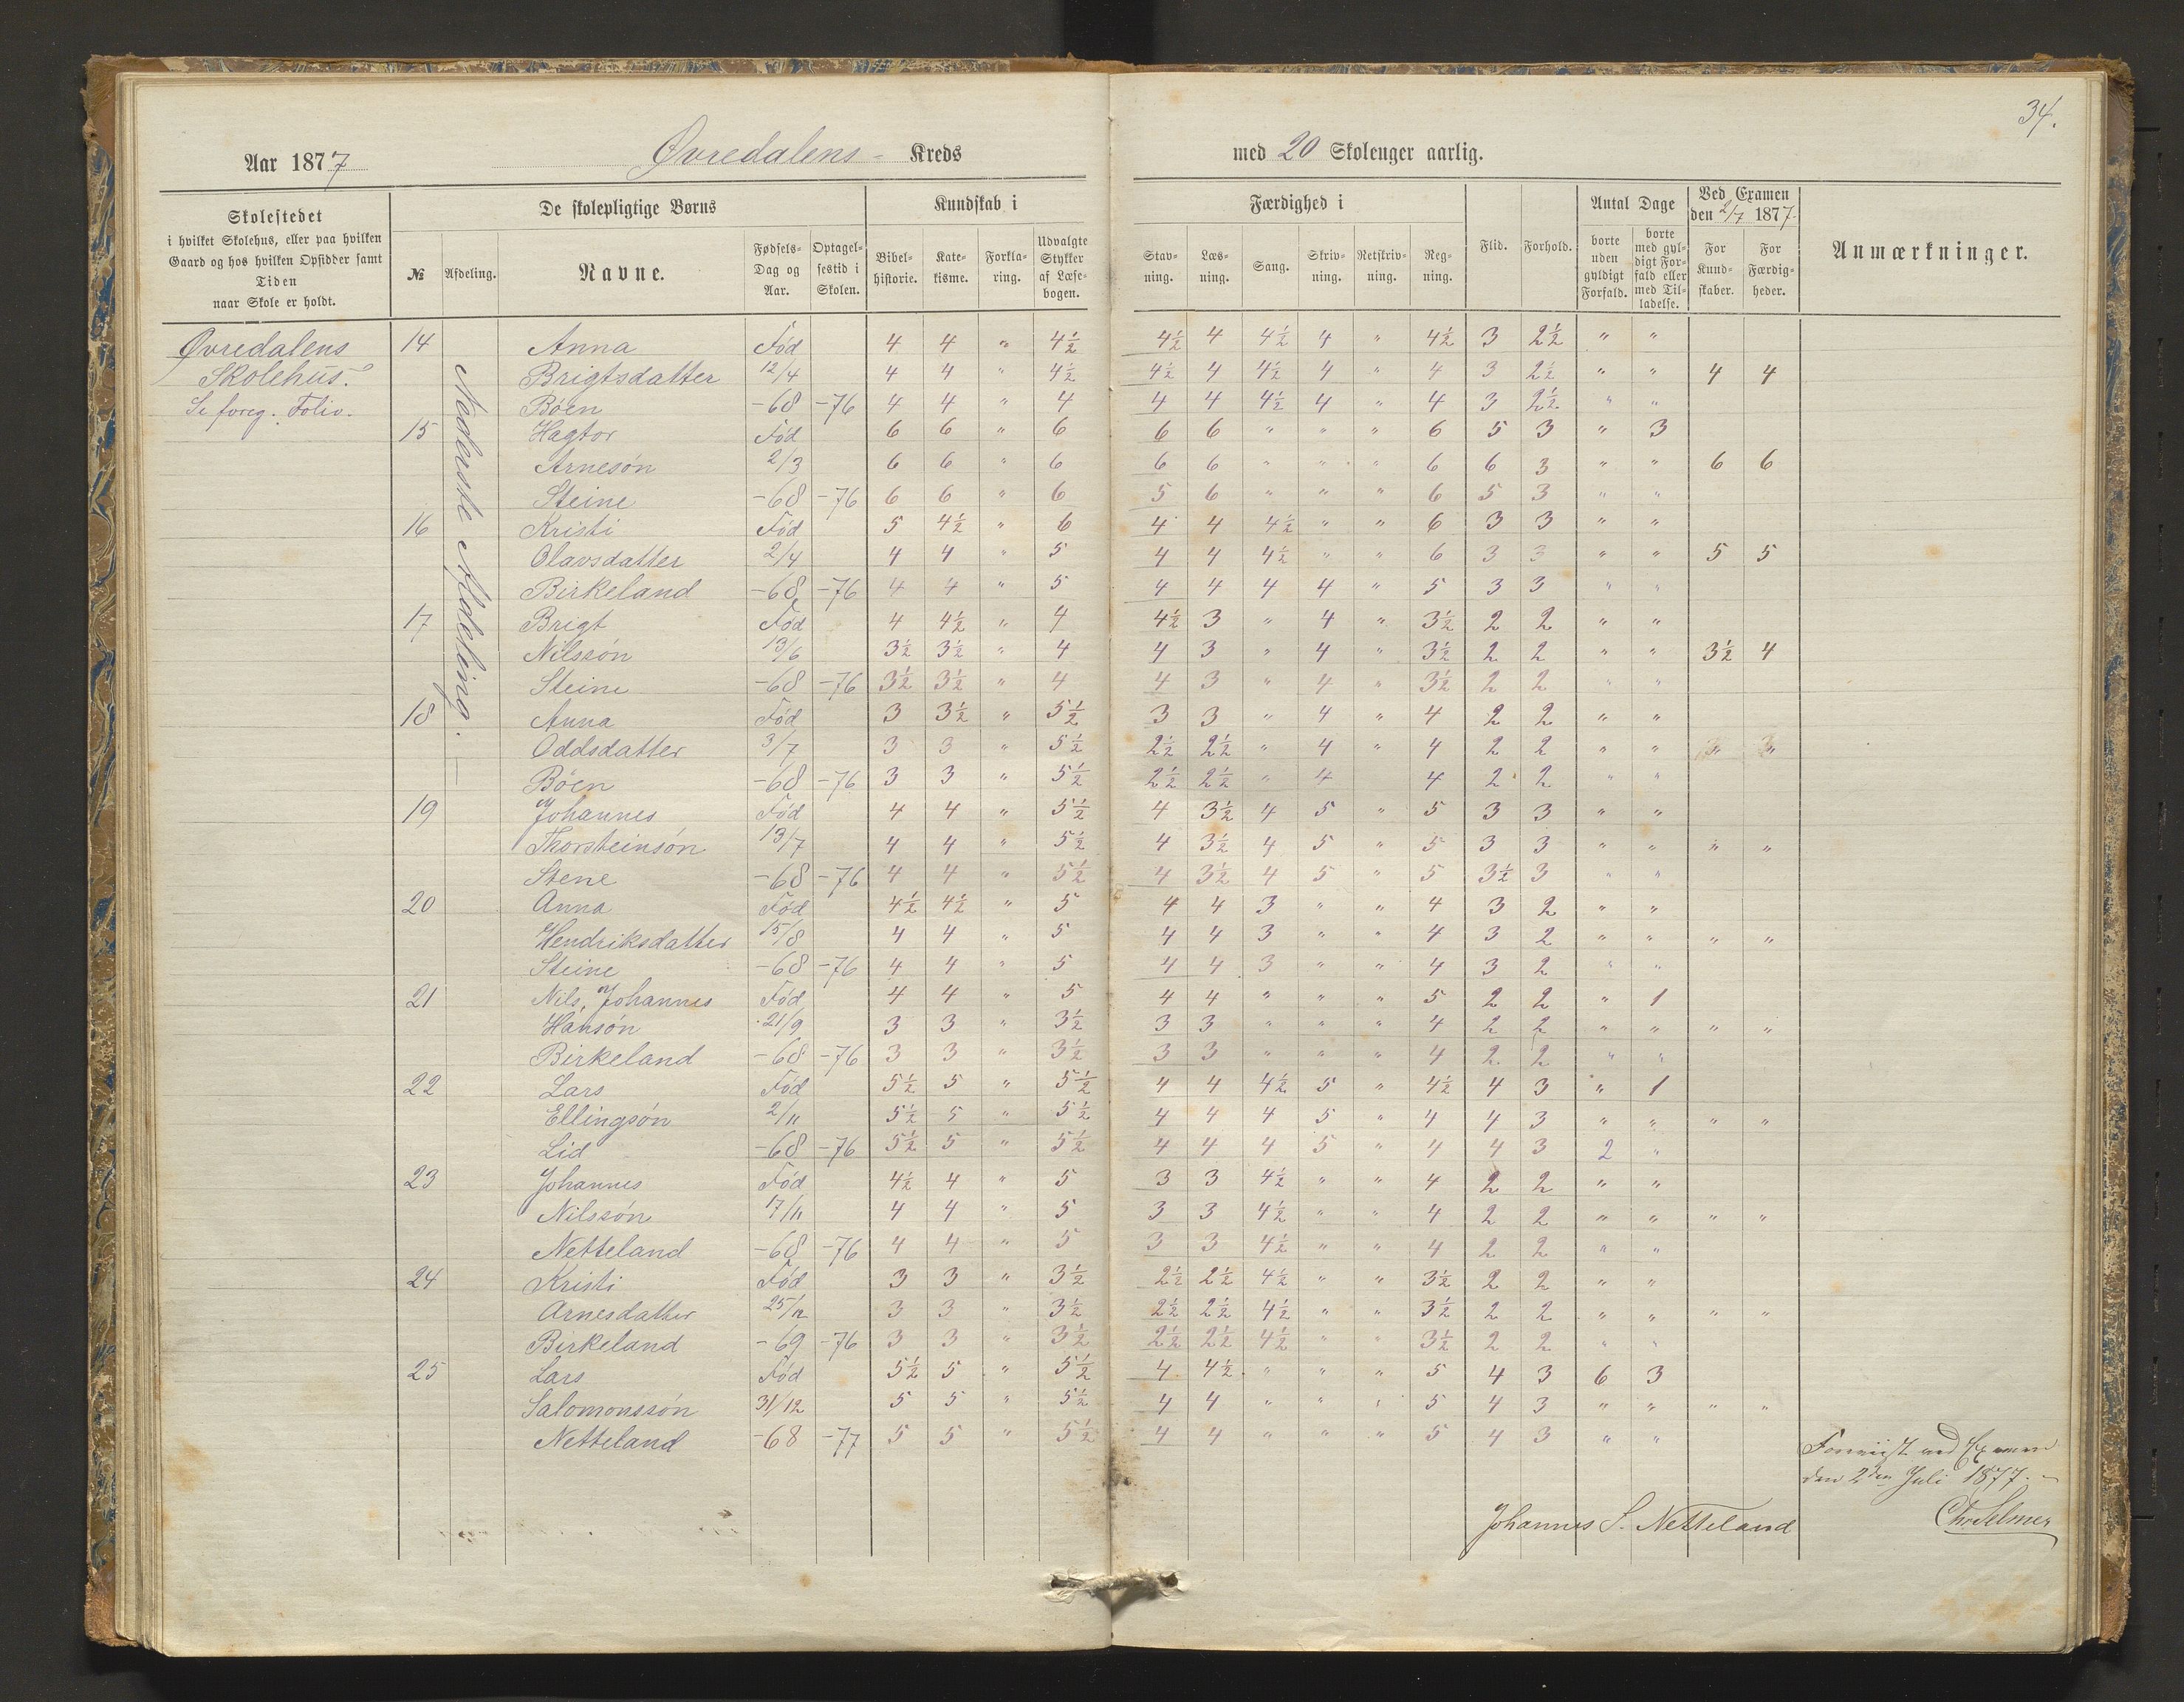 34.
Aar 1877 Øvredalens - Kreds med 20 Skoleuger aarlig.
Skolestedet i hvilket Skolehus, eller paa hvilken Gaard og hos hvilken Opsidder samt Tiden naar Skole er holdt.
De skolepligtige Børns
№ Afdeling. Navne. Fødsels-Dag og Aar. Optagelsestid i Skolen.
Kundskab i
Bibelhistorie. Katekisme. Forklaring. Udvalgte Stykker af Læsebogen.
Færdighed i
Stavning. Læsning. Sang. Skrivning. Retskrivning. Regning.
Flid. Forhold.
Antal Dage
borte uden gyldigt Forfald. borte med gyldigt Forfald eller med Tilladelse.
Ved Examen den 2/7 1877.
For Kundskaber. For Færdigheder.
Anmærkninger.
Nederste Afdeling. —
Øvredalens 14 Anna Fød 4 4 " 4½ 4½ 4 4½ 4 " 4½ 3 2½ " "
Skolehus. Brigtsdatter 12/4 4 4 " 4½ 4½ 4 4½ 4 " 4 3 2½ " " 4 4
Se foreg. Folio. Bøen -68 -76 4 4 " 4 4 4 4½ 4 " 4 3 2½ " "
15 Hagtor Fød 6 6 " 6 6 6 " " " 6 5 3 " 3
Arnesøn 2/3 6 6 " 6 6 6 " " " 6 6 3 " " 6 6
Steine -68 -76 6 6 " 6 5 6 " " " 6 5 3 " "
16 Kristi Fød 5 4½ " 6 4 4 4½ " " 6 3 3 " "
Olavsdatter 2/4 4 4 " 5 4 4 4½ " " 6 3 3 " " 5 5
Birkeland -68 -76 4 4 " 5 4 4 4 4 " 5 3 3 " "
17 Brigt Fød 4 4½ " 4 4½ 3 " 4 " 3½ 2 2 " "
Nilssøn 13/6 3½ 3½ " 4 4 3 " 4 " 3½ 2 2 " " 3½ 4
Steine -68 -76 3½ 3½ " 4 4 3 " 4 " 3½ 2 2 " "
18 Anna Fød 3 3½ " 5½ 3 3 " 4 " 4 2 2 " "
Oddsdatter 3/7 3 3 " 5½ 2½ 2½ " 4 " 4 2 2 " " " "
Bøen -68 -76 3 3 " 5½ 2½ 2½ " 4 4 2 2 " "
19 Johannes Fød 4 4 " 5½ 4 3½ 4 5 " 5 3 3 " "
Thorsteinsøn 13/7 4 4 " 5½ 4 3½ 4 5 " 5 3 3 " " " "
Stene -68 -76 4 4 " 5½ 4 3½ 4 5 " 5 3½ 3 " "
20 Anna Fød 4½ 4½ " 5 4 4 3 " " 4 3 2 " "
Hendriksdatter 15/8 4 4 " 5 4 4 3 " " 4 3 2 " " " "
Steine -68 -76 4 4 " 5 4 4 3 " " 4 3 2 " "
21 Nils, Johannes Fød 4 4 " 5 4 4 " " " 5 2 2 " 1
Hansøn 21/9 3 3 " 3½ 3 3 " " " 4 2 2 " " " "
Birkeland -68 -76 3 3 " 3½ 3 3 " " " 4 2 2 " "
22 Lars Fød 5½ 5 " 5½ 4 4 4½ 5 " 4½ 4 3 " 1
Ellingsøn 2/11 5½ 5 " 5½ 4 4 4 5 " 4 4 3 " " " "
Lid -68 -76 5½ 5 " 5½ 4 4 4 5 " 4 4 3 2 "
23 Johannes Fød 4½ 4 " 5 3 3 4½ " " 4 2 2 " "
Nilssøn 17/11 4 4 " 5 3 3 4½ " " 4 2 2 " " " "
Netteland -68 -76 4 4 " 5 3 3 4½ " " 4 2 2 " "
24 Kristi Fød 3 3 " 3½ 2½ 2½ 4½ " " 3½ 2 2 " "
Arnesdatter 25/12 3 3 " 3½ 2½ 2½ 4½ " " 3½ 2 2 " " " "
Birkeland -69 -76 3 3 " 3½ 2½ 2½ 4½ " " 3½ 2 2 " "
25 Lars Fød 5½ 5 " 5½ 4 4½ " " " 5 4 3 6 3
Salomonssøn 31/12 5 5 " 5½ 4 4 " " " 5 4 3 " " " "
Netteland -68 -77 5 5 " 5½ 4 4 " " " 5 4 3 " "
Foreviist ved Examen
den 2den Juli 1877. -
Johannes S. Netteland Chr Selmer